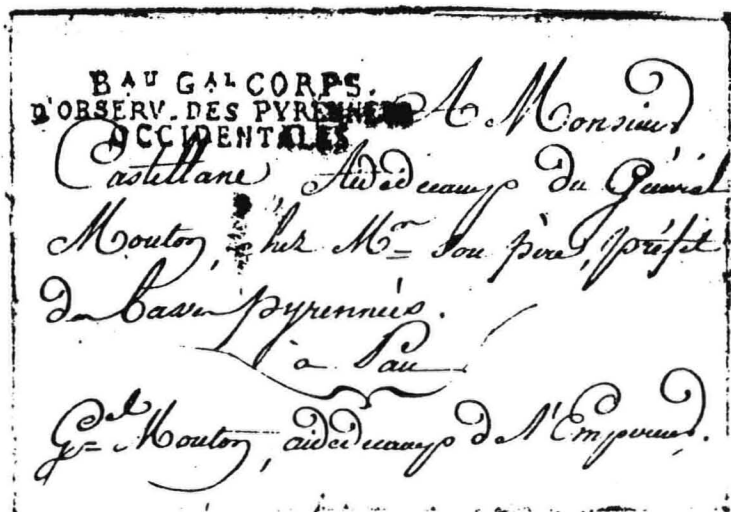 BAU GAL CORPS.
D'OBSERV. DES PYRENNEES
OCCIDENTALES
A Monsieur
Castellane, Aidedecamp du Général
Mouton, chez Mr. Son père, préfet
des basses pyrennées.
à Pau
Gal Mouton, aidedecamp de l'Empereur.